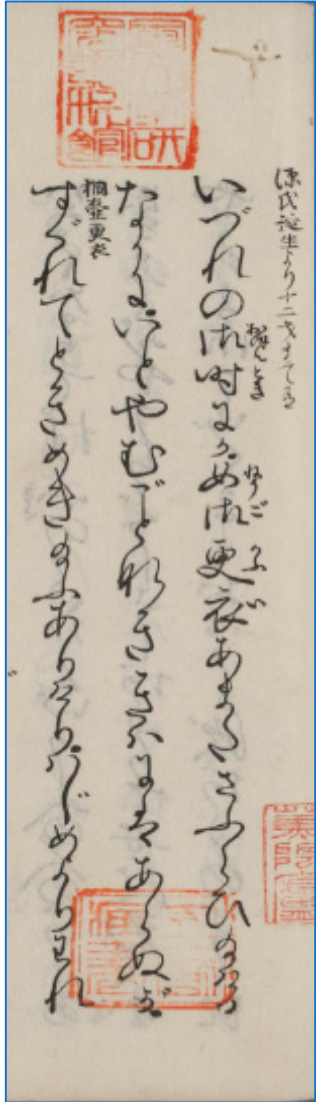 源氏誕生より十二才まて有
いづれの御時にか女御更衣あまたさふらひ給ける
おほんとき
にうご
かうい
なかにいとやむごとなききはにはあらぬが
桐壺更衣
すぐれてときめき給ふありけりはじめよりわれ